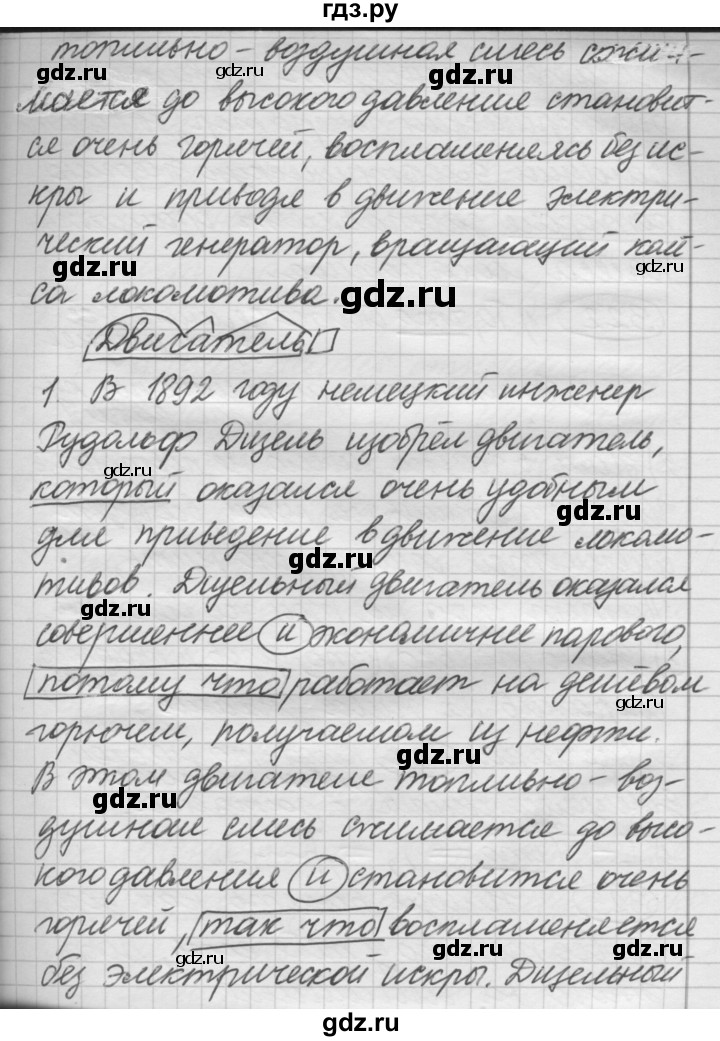 гдз.ру
топливно-воздушная смесь сжи-
мается до высокого давления становит-
ся очень горячей, воспламеняясь без ис-
кры и приводя в движение электри-
ческий генератор, вращающий
gdz.ru
gdz.ru
gdz.ru
са локомотива.
gdz.ru
Двигатель
gdz.ru
1. В 1892 году немецкий инженер
Рудольф Дизель изобрёл двигатель,
gdz.ru
который оказался очень удобным
gdz.ru
для приведение в движение локомо-
gdz.ru
тивов. Дизельный двигатель оказался
gdz.ru
совершеннее и экономичнее парового,
потому что работает на дешёвом
gdz.ru
горючем, получаемом из нефти.
gdz.ru
В этом двигателе топливно-воз-
gdz.ru
душная смесь сжимается до высо-
кого давления и становится очень
горячей, так что воспламеняется
gdz.ru
gdz.ru
gdz.ru
без электрической искры. Дизельный
gdz.ru
gdz.ru